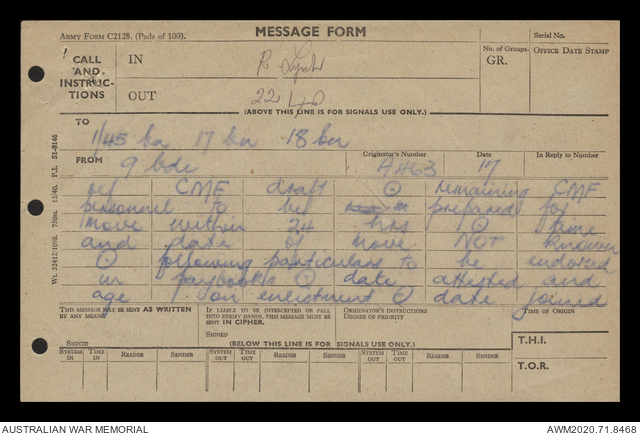 ARMY FORM C2128. (Pads of 100).
MESSAGE FORM
Serial No.
CALL AND INSTRUC-TIONS
IN
R
No. of Groups.
GR.
OFFICE DATE STAMP
OUT
2240
(ABOVE THIS LINE IS FOR SIGNALS USE ONLY.)
TO
1/45 bn 17 bn 18 bn
FROM
9 bde
Originator's Number
4463
Date
17
In Reply to Number
CMF draft ⊙ remaining CMF
personnel to be prepared for
move within 24 hrs ⊙ time
and date of move NOT known
⊙ following particulars to be endorsed
in paybooks ⊙ date attested and
age on enlistment ⊙ date joined
THIS MESSAGE MAY BE SENT AS WRITTEN BY ANY MEANS
IF LIABLE TO BE INTERCEPTED OR FALL INTO ENEMY HANDS, THIS MESSAGE MUST BE SENT IN CIPHER.
ORIGINATOR'S INSTRUCTIONS DEGREE OF PRIORITY
TIME OF ORIGIN
SIGNED
SIGNED
(BELOW THIS LINE IS FOR SIGNALS USE ONLY.)
T.H.I.
T.O.R.
SYSTEM IN
TIME IN
READER
SENDER
SYSTEM OUT
TIME OUT
READER
SENDER
SYSTEM OUT
TIME OUT
READER
SENDER
P.L. 51-8146
AUSTRALIAN WAR MEMORIAL
AWM2020.71.8468